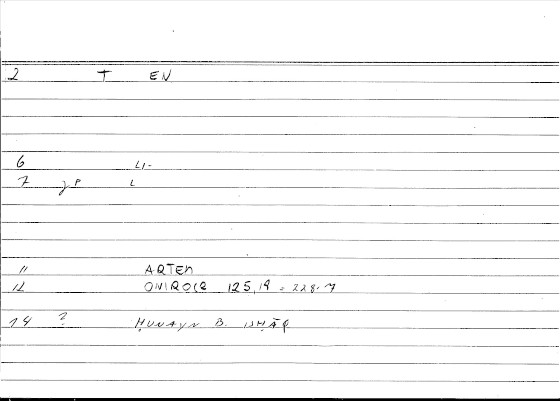 2 T EN
6 LI-
7 L
11 ARTEM
12 ONIROCR 125,19 = 228.7
14 ? ḤUNAYN B. ISḤĀQ